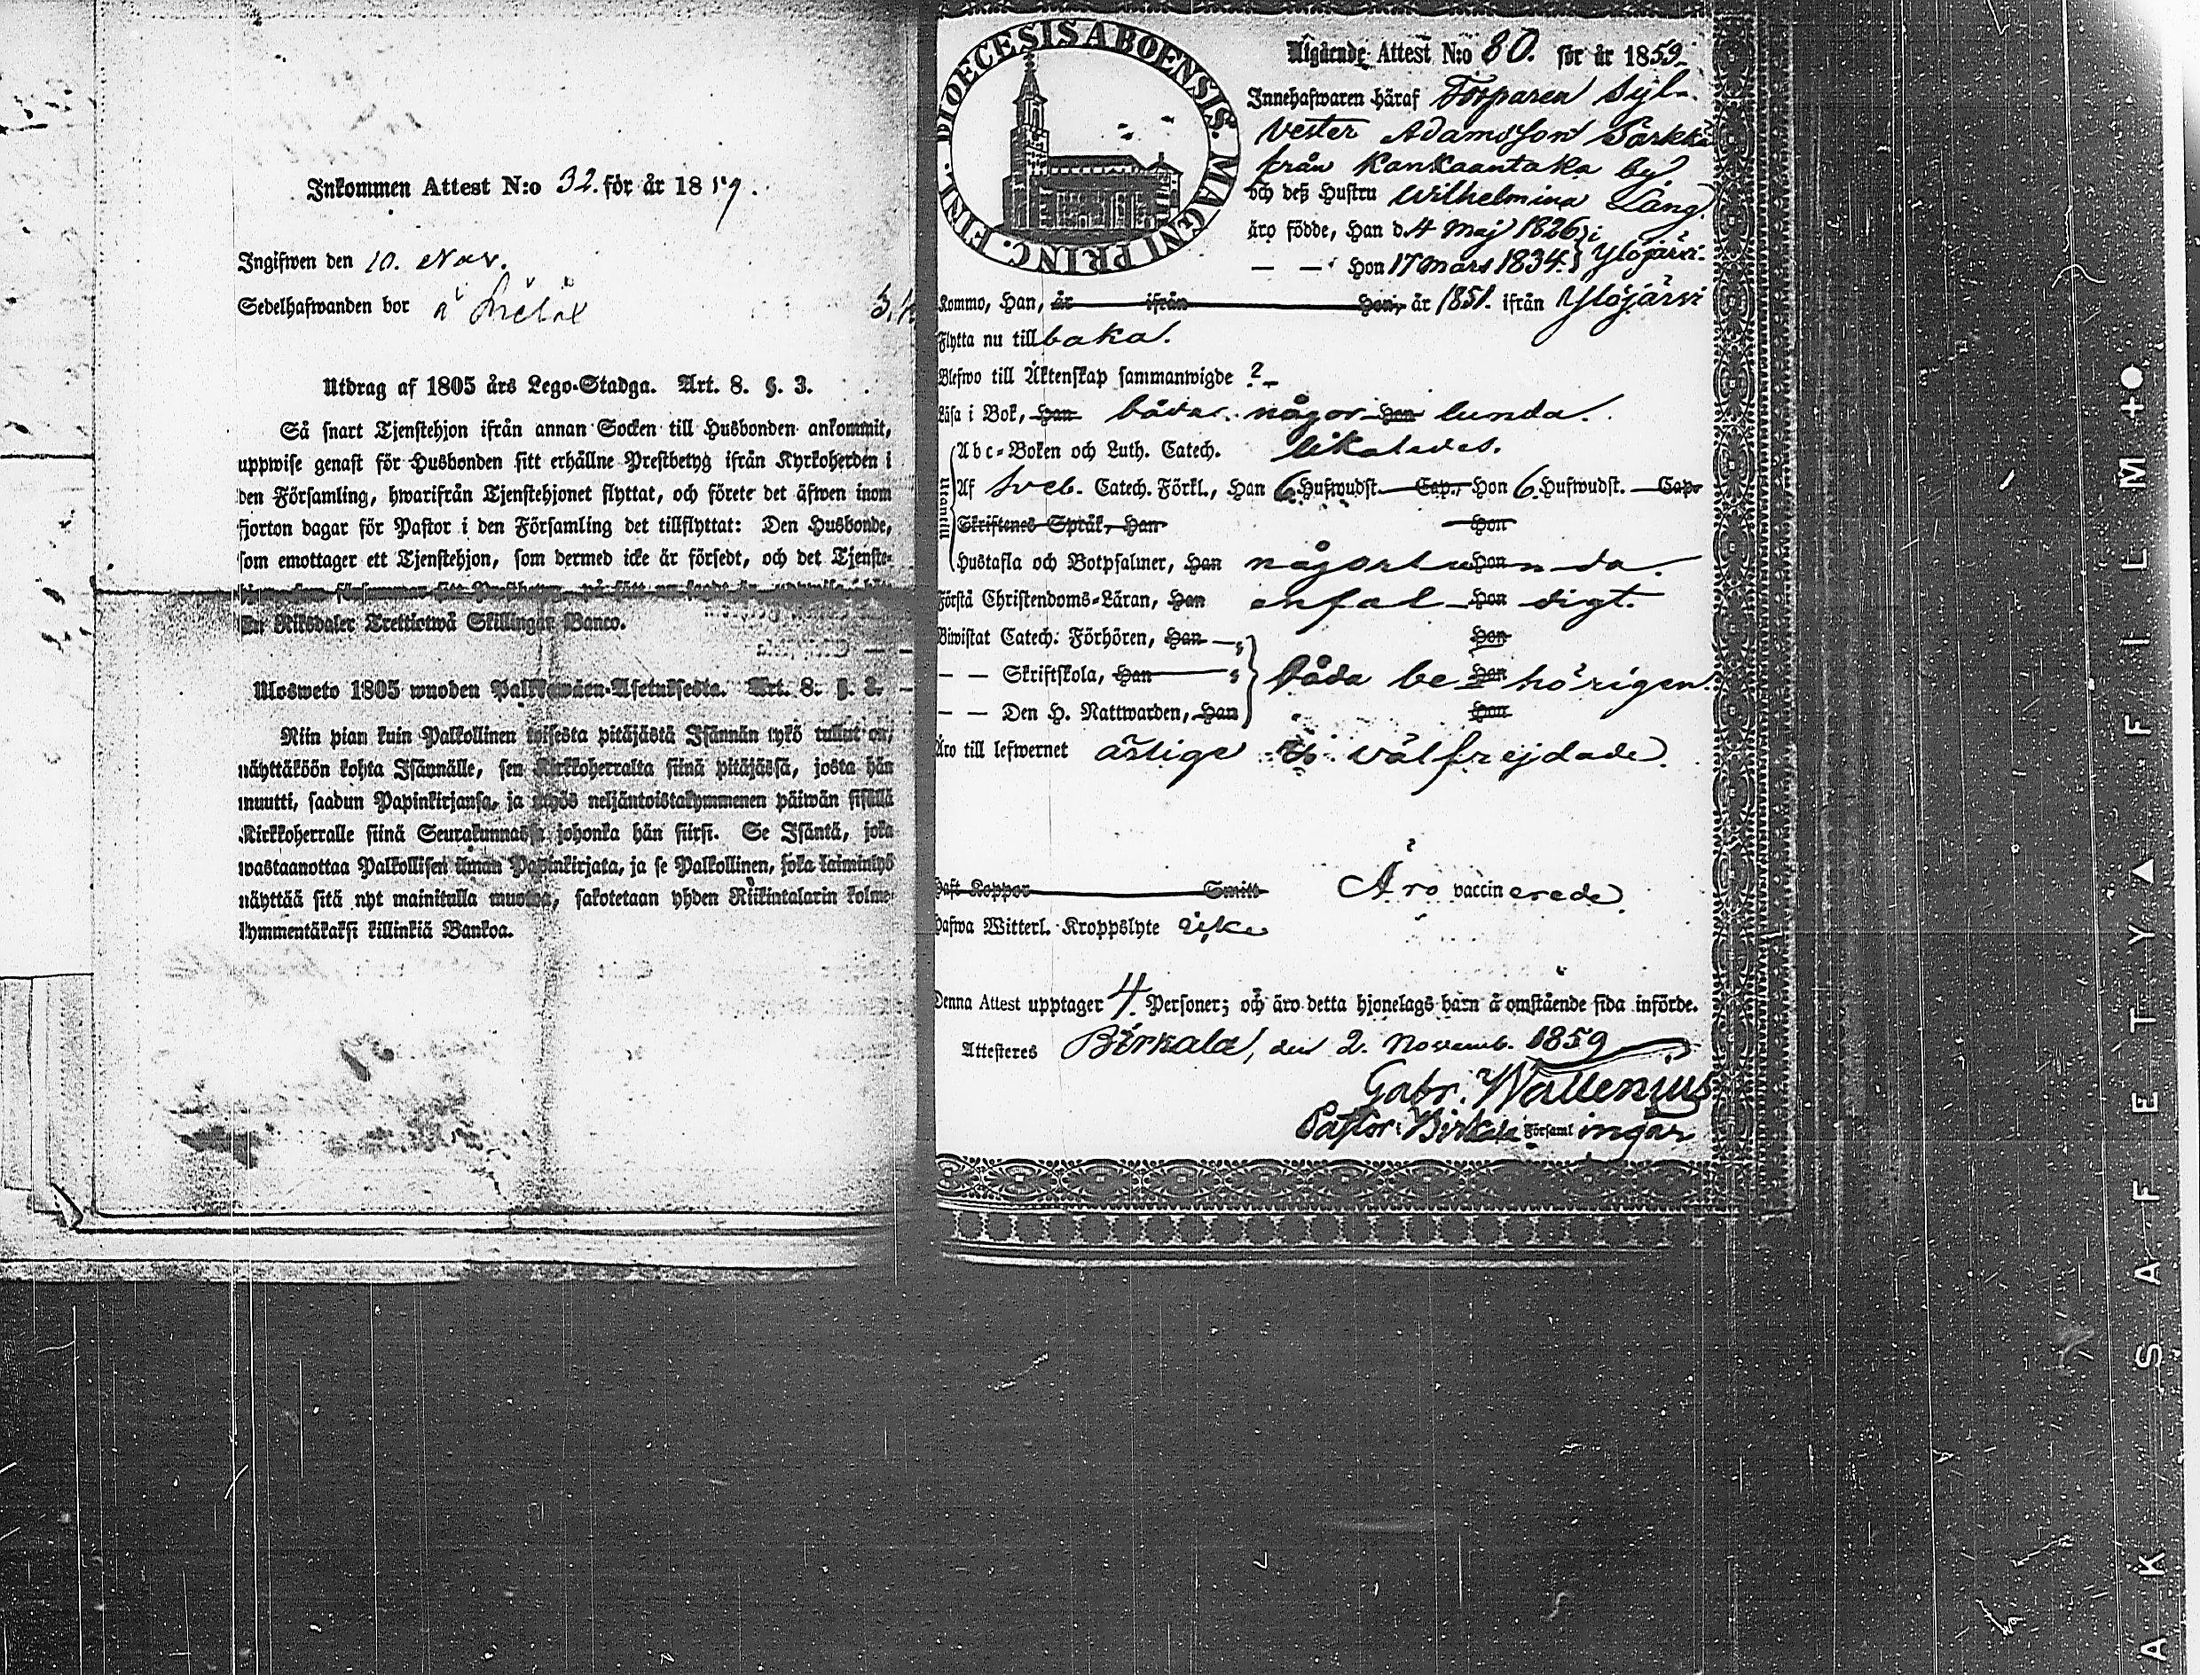 Inkommen Attest N:o 32. för år 1859.
Ingifwen den 10. Nov.
Sedelhafwanden bor å
Utdrag af 1805 års Lego-Stadga. Art. 8. §. 3.
Så snart Tjenstehjon ifrån annan Socken till Husbonden ankommit,
uppwise genast för Husbonden sitt erhållne Prestbetyg ifrån Kyrkoherden i
den Församling, hwarifrån Tjenstehjonet flyttat, och förete det äfwen inom
fjorton dagar för Pastor i den Församling det tillflyttat: Den Husbonde,
som emottager ett Tjenstehjon, som dermed icke är försedt, och det Tjenste-
En Riksdaler Trettiotwå Skillingar Banco.
Ulosweto 1805 wuoden Palkkawäen-Asetuksesta. Art. 8. §. 3.
Niin pian kuin Palkollinen toisesta pitäjästä Isännän tykö tullut on,
näyttäköön kohta Isännälle, sen Kirkkoherralta siinä pitäjässä, josta hän
muutti, saadun Papinkirjansa, ja myös neljäntoistakymmenen päiwän sisällä
Kirkkoherralle siinä Seurakunnassa johonka hän siirsi. Se Isäntä, joka
wastaanottaa Palkollisen ilman Papinkirjata, ja se Palkollinen, joka laiminlyö
näyttää sitä nyt mainitulla muotoa, sakotetaan yhden Riikintalarin kolme-
kymmentäkaksi killinkiä Bankoa.
DIOECESIS ABOENSIS. MAGNI PRINC. FINL.
Utgående Attest N:o 80. för år 1859.
Innehafwaren häraf Torparen Syl-
vester Adamsson Särkkä
från Kankaantaka by
och deß Hustru Wilhelmina Lång.
äro födde, Han d. 4 Maj 1826 } i
— — Hon 17 Mars 1834. } Ylöjärvi.
Kommo, Han, år ifrån Hon, år 1851. ifrån Ylöjärvi
Flytta nu tillbaka.
Blefwo till Äktenskap sammanwigde ? -
Läsa i Bok, Han båda någor Hon lunda.
utantill
Abc-Boken och Luth. Catech. likaledes.
Af Sveb. Catech. Förkl., Han 6. Hufwudst. Cap., Hon 6. Hufwudst. Cap.
Skriftenes Språk, Han Hon
Hustafla och Botpsalmer, Han någorlu Hon nda.
Förstå Christendoms-Läran, Han enfal Hon digt.
Biwistat Catech. Förhören, Han Hon
— — Skriftskola, Han } båda be Hon hörigen.
— — Den H. Nattwarden, Han Hon
Äro till lefwernet ärlige o. välfrejdade.
Haft Koppor Smitt Äro vaccinerede.
Hafwa Witterl. Kroppslyte icke
Denna Attest upptager 4. Personer; och äro detta hjonelags barn å omstående sida införde.
Attesteres Birkala, den 2. Novemb. 1859
Gabr. Wallenius
Pastor i Birkala Församlingar
AK SAFETY ▲ FILM +●